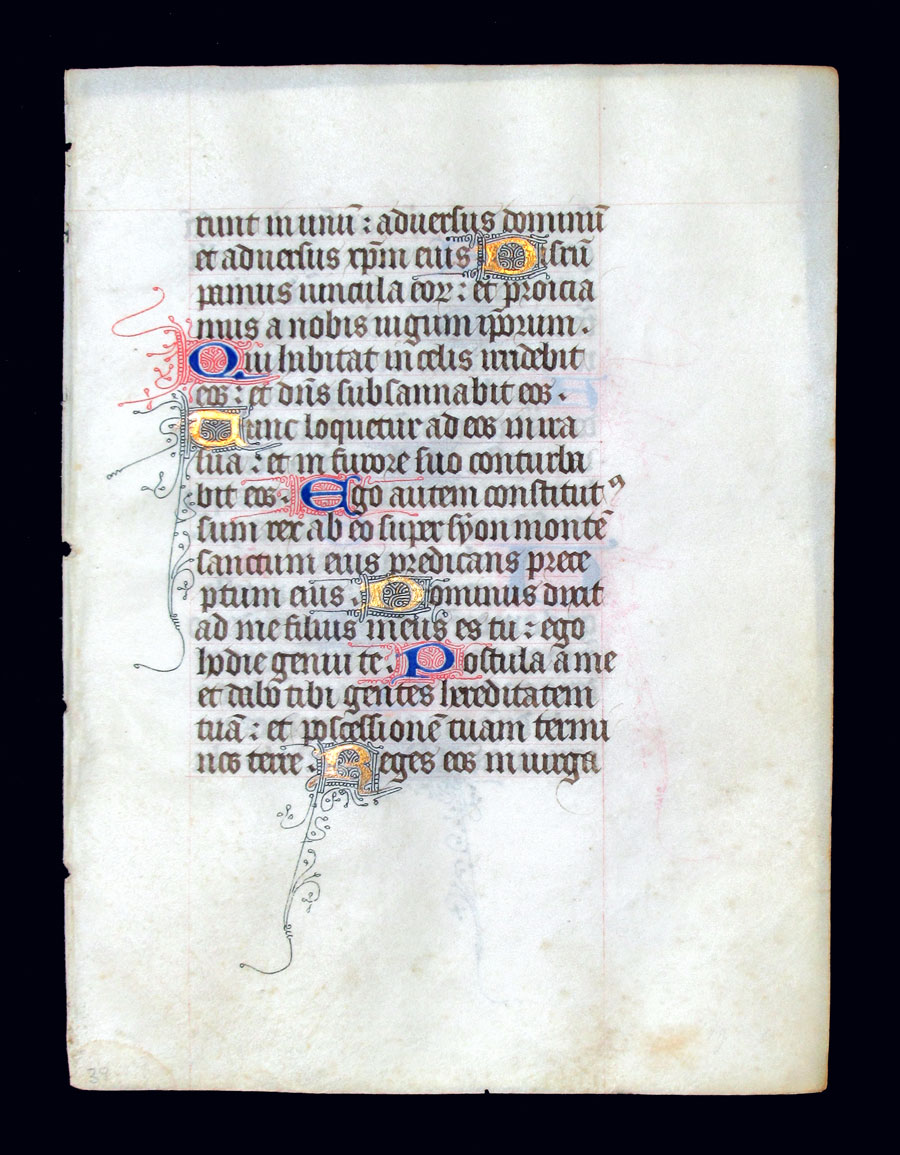 runt in unū : adversus dominū
et adversus xp̄m eius Disrū
pamus vincula eoꝝ : et proicia
mus a nobis iugum ip̄orum .
Qui habitat in celis irridebit
eos : et dn̄s subsannabit eos .
Tunc loquetur ad eos in ira
sua : et in furore suo conturba
bit eos . Ego autem constitutꝰ
sum rex ab eo super syon montē
sanctum eius predicans prece
ptum eius . Dominus dixit
ad me filius meus es tu : ego
hodie genui te . Postula a me
et dabo tibi gentes hereditatem
tuā : et possessionē tuam termi
nos terre . Reges eos in virga
39